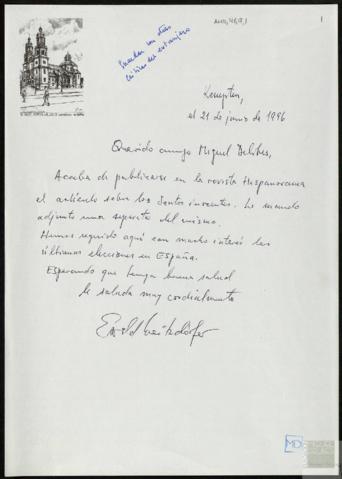 Guardar con otras
críticas del extranjero
Kempten,
el 21 de junio de 1996
Querido amigo Miguel Delibes,
Acaba de publicarse en la revista Hispanorama
el artículo sobre los Santos inocentes. Le mando
adjunto una separata del mismo.
Hemos seguido aquí con mucho interés las
últimas elecciones en España.
Esperando que tenga buena salud
le saluda muy cordialmente
Ewald Weitzdörfer
MD